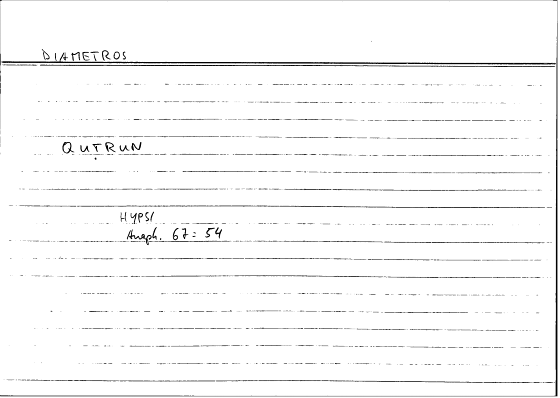 DIAMETROS
QUṬRUN
HYPSI
Anaph. 67 : 54